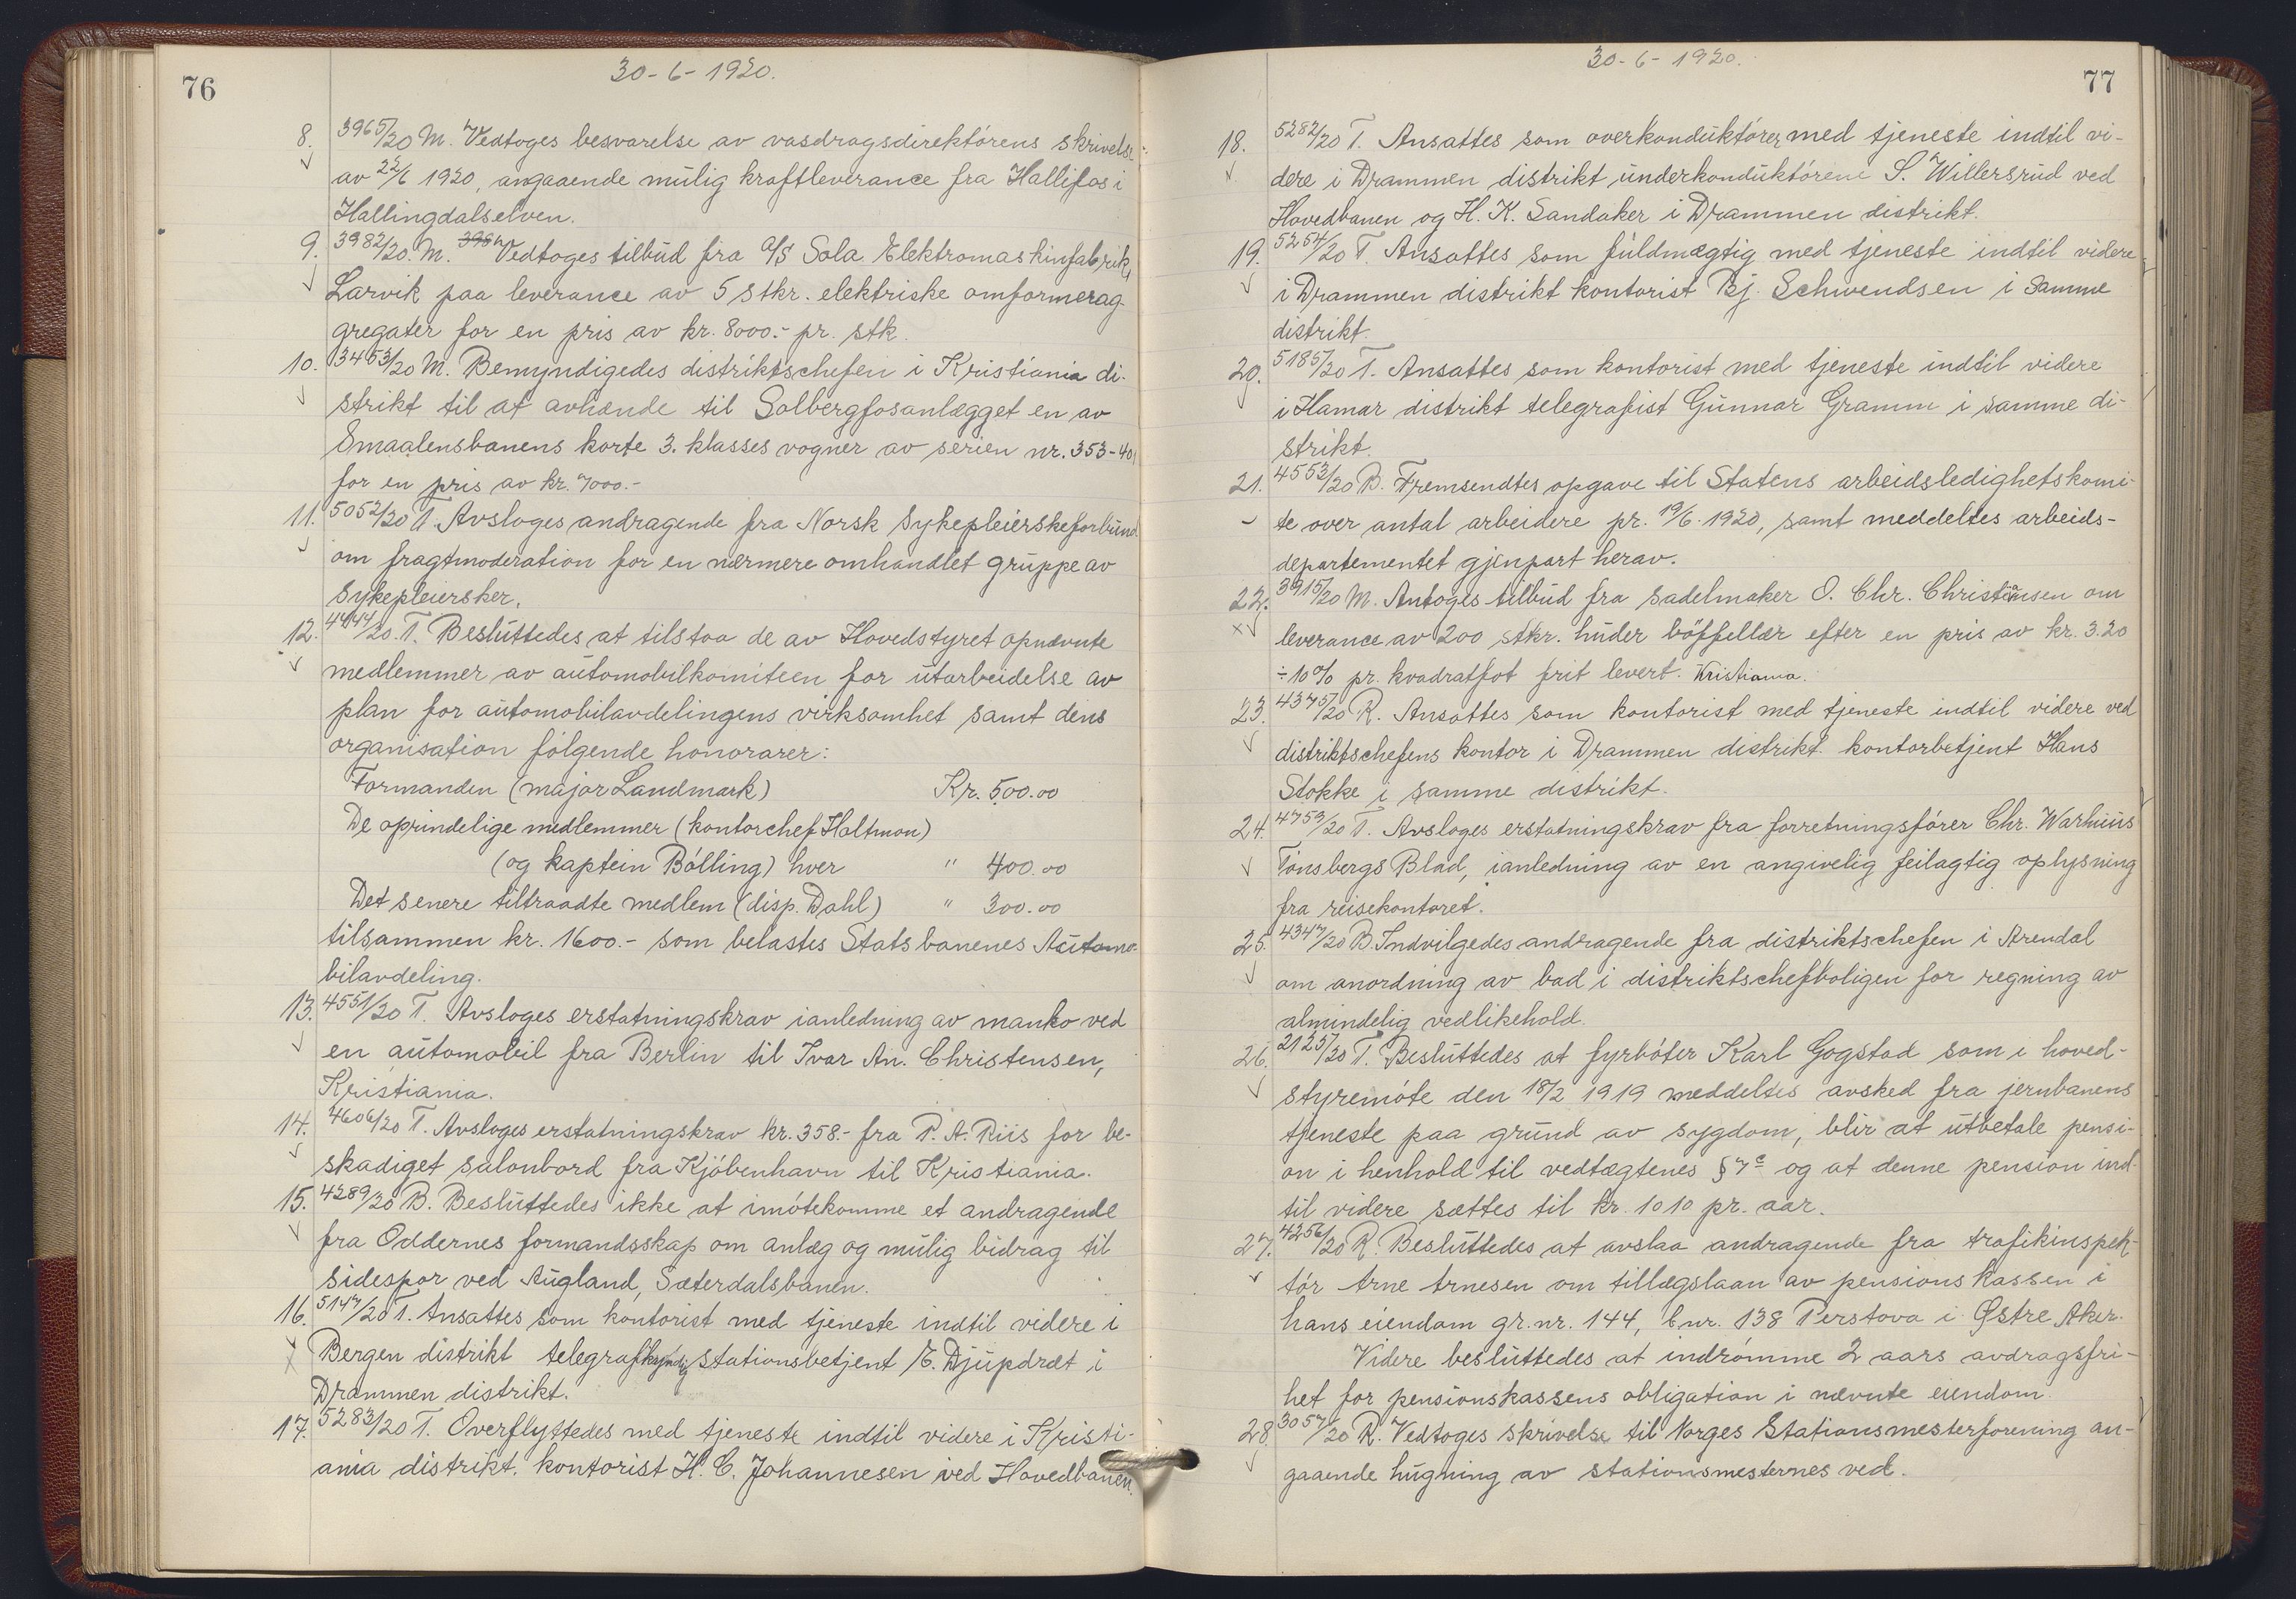 76
30-6-1920.
8. 3965/20 M. Vedtoges besvarelse av vasdragsdirektørens skrivelse
av 22/6 1920, angaaende mulig kraftleverance fra Hallifos i
Hallingdalselven.
9. 3982/20. M. Vedtoges tilbud fra A/S Sola Elektromaskinfabrik,
Larvik paa leverance av 5 stkr. elektriske omformerag-
gregater for en pris av kr. 8000.- pr. stk.
10. 3453/20 M. Bemyndigedes distriktschefen i Kristiania di-
strikt til at avhænde til Solbergfosanlægget en av
Smaalensbanens korte 3. klasses vogner av serien nr. 353-401
for en pris av kr. 7000.-
11. 5052/20 T. Avsloges andragende fra Norsk Sykepleierskeforbund
om fragtmoderation for en nærmere omhandlet gruppe av
Sykepleiersker.
12. 4444/20. T. Besluttedes at tilstaa de av Hovedstyret opnævnte
medlemmer av automobilkomiteen for utarbeidelse av
plan for automobilavdelingens virksomhet samt dens
organisation følgende honorarer:
Formanden (major Landmark) Kr. 500.00
De oprindelige medlemmer (kontorchef Holtmon)
(og kaptein Bølling) hver " 400.00
Det senere tiltraadte medlem (disp. Dahl) " 300.00
tilsammen kr. 1600.- som belastes Statsbanenes Automo-
bilavdeling.
13. 4551/20 T. Avsloges erstatningskrav ianledning av manko ved
en automobil fra Berlin til Ivar An. Christensen,
Kristiania.
14. 4606/20 T. Avsloges erstatningskrav kr. 358.- fra P. A. Riis for be-
skadiget salonbord fra Kjøbenhavn til Kristiania.
15. 4289/20 B. Besluttedes ikke at imøtekomme et andragende
fra Oddernes formandsskap om anlæg og mulig bidrag til
sidespor ved Augland, Sæterdalsbanen.
16. 5147/20 T. Ansattes som kontorist med tjeneste indtil videre i
Bergen distrikt telegrafkyndig stationsbetjent E. Djupdræt i
Drammen distrikt.
17. 5283/20 T. Overflyttedes med tjeneste indtil videre i Kristi-
ania distrikt. kontorist H. C. Johannesen ved Hovedbanen.
30-6-1920.
77
18. 5282/20 T. Ansattes som overkonduktører med tjeneste indtil vi-
dere i Drammen distrikt underkonduktørene S. Willersrud ved
Hovedbanen og H. K. Sandaker i Drammen distrikt.
19. 5254/20 T. Ansattes som fuldmægtig med tjeneste indtil videre
i Drammen distrikt kontorist Bj. Schwendsen i samme
distrikt.
20. 5185/20 T. Ansattes som kontorist med tjeneste indtil videre
i Hamar distrikt telegrafist Gunnar Gramm i samme di-
strikt.
21. 4553/20 B. Fremsendtes opgave til Statens arbeidsledighetskomi-
te over antal arbeidere pr. 19/6. 1920, samt meddeltes arbeids-
departementet gjenpart herav.
22. 3915/20 M. Antoges tilbud fra sadelmaker O. Chr. Christiansen om
leverance av 200 stkr. huder bøffellær efter en pris av kr. 3.20
÷ 10% pr. kvadratfot frit levert. Kristiania.
23. 4375/20 R. Ansattes som kontorist med tjeneste indtil videre ved
distriktschefens kontor i Drammen distrikt kontorbetjent Hans
Stokke i samme distrikt.
24. 4753/20 T. Avsloges erstatningskrav fra forretningsfører Chr. Warhuus
Tønsbergs Blad, ianledning av en angivelig feilagtig oplysning
fra reisekontoret.
25. 4347/20 B. Indvilgedes andragende fra distriktschefen i Arendal
om anordning av bad i distriktschefboligen for regning av
almindelig vedlikehold.
26. 2125/20 T. Besluttedes at fyrbøter Karl Gogstad som i hoved-
styremøte den 18/2 1919 meddeltes avsked fra jernbanens
tjeneste paa grund av sygdom, blir at utbetale pensi-
on i henhold til vedtægtenes § 7c og at denne pension ind-
til videre sættes til kr. 1010 pr. aar.
27. 4256/20 R. Besluttedes at avslaa andragende fra trafikinspek-
tør Arne Arnesen om tillægslaan av pensionskassen i
hans eiendom gr. nr. 144, b.nr. 138 Perstova i Østre Aker.
Videre besluttedes at indrømme 2 aars avdragsfri-
het for pensionskassens obligation i nævnte eiendom.
28. 3057/20 R. Vedtoges skrivelse til Norges Stationsmesterforening an-
gaaende hugning av stationsmesternes ved.